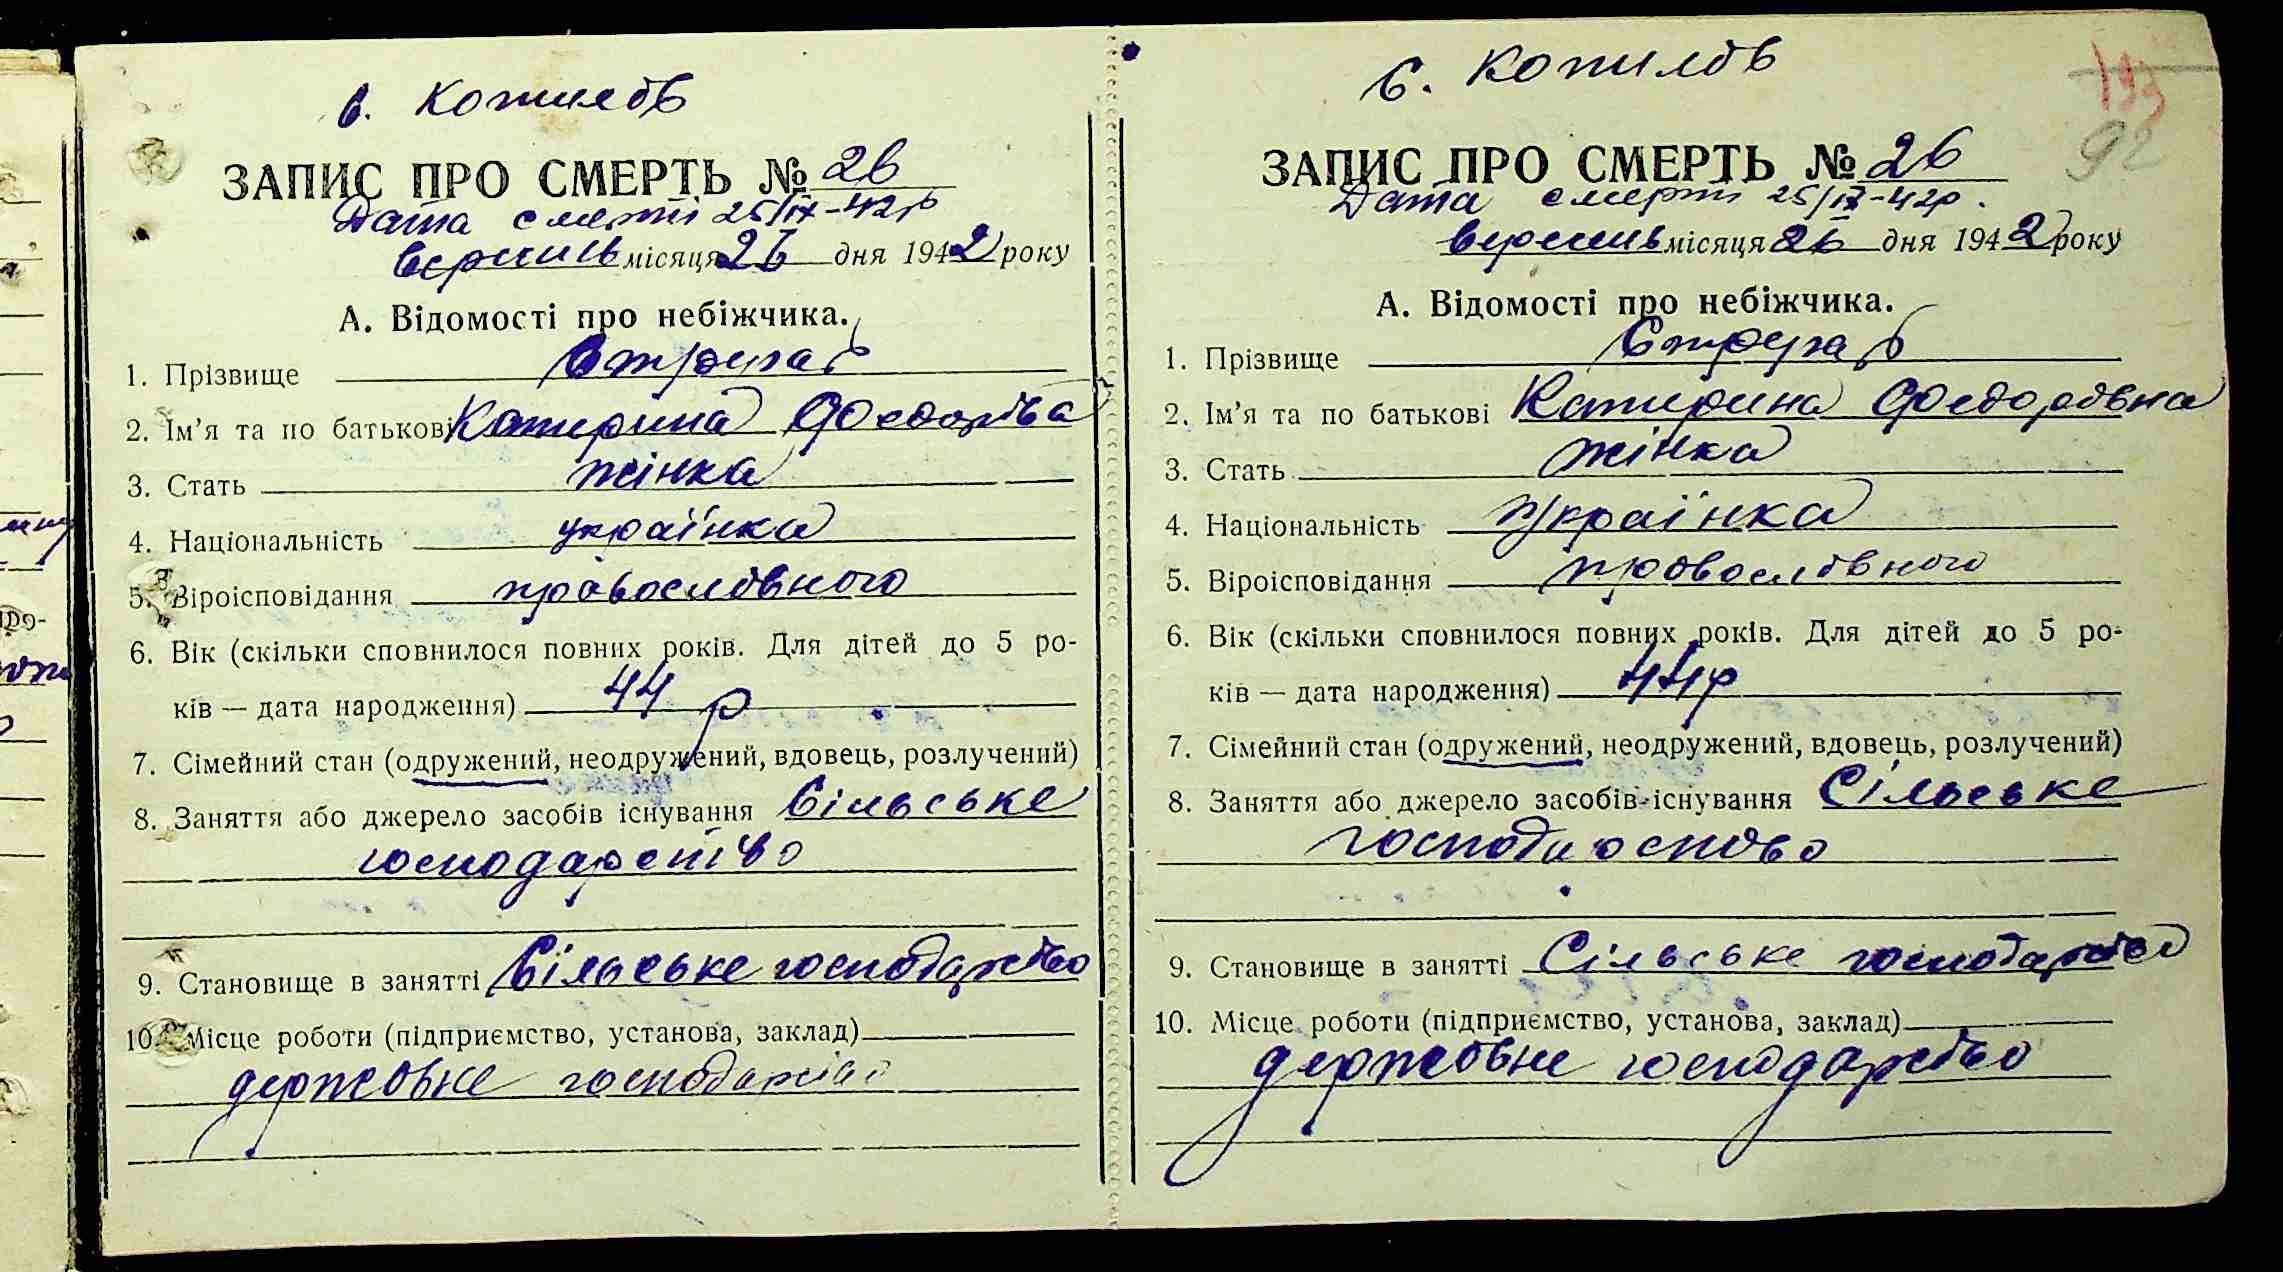 с. Копилів
ЗАПИС ПРО СМЕРТЬ № 26
Дата смерті 25/IX-42р
вересень місяця 26 дня 1942 року
А. Відомості про небіжчика.
1. Прізвище
2. Ім'я та по батькові Катерина Федорівна
3. Стать жінка
4. Національність українка
5. Віроісповідання православного
6. Вік (скільки сповнилося повних років. Для дітей до 5 ро-
ків — дата народження) 44 р
7. Сімейний стан (одружений, неодружений, вдовець, розлучений)
8. Заняття або джерело засобів існування Сільське
господарство
9. Становище в занятті Сільське господарство
10. Місце роботи (підприємство, установа, заклад)
державне господарство
с. Копилів
193
92
ЗАПИС ПРО СМЕРТЬ № 26
Дата смерти 25/IX-42р.
вересень місяця 26 дня 1942 року
А. Відомості про небіжчика.
1. Прізвище
2. Ім'я та по батькові Катерина Федорівна
3. Стать жінка
4. Національність Українка
5. Віроісповідання православного
6. Вік (скільки сповнилося повних років. Для дітей до 5 ро-
ків — дата народження) 44р
7. Сімейний стан (одружений, неодружений, вдовець, розлучений)
8. Заняття або джерело засобів існування Сільське
господарство
9. Становище в занятті Сільське господарство
10. Місце роботи (підприємство, установа, заклад)
державне господарство